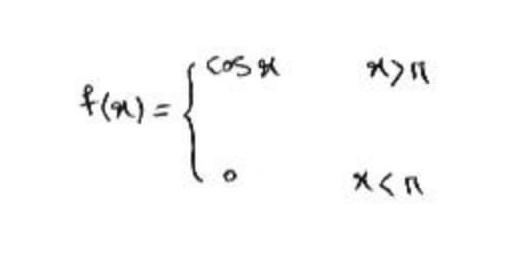 f(x) = { cos x    x > π
0    x < π